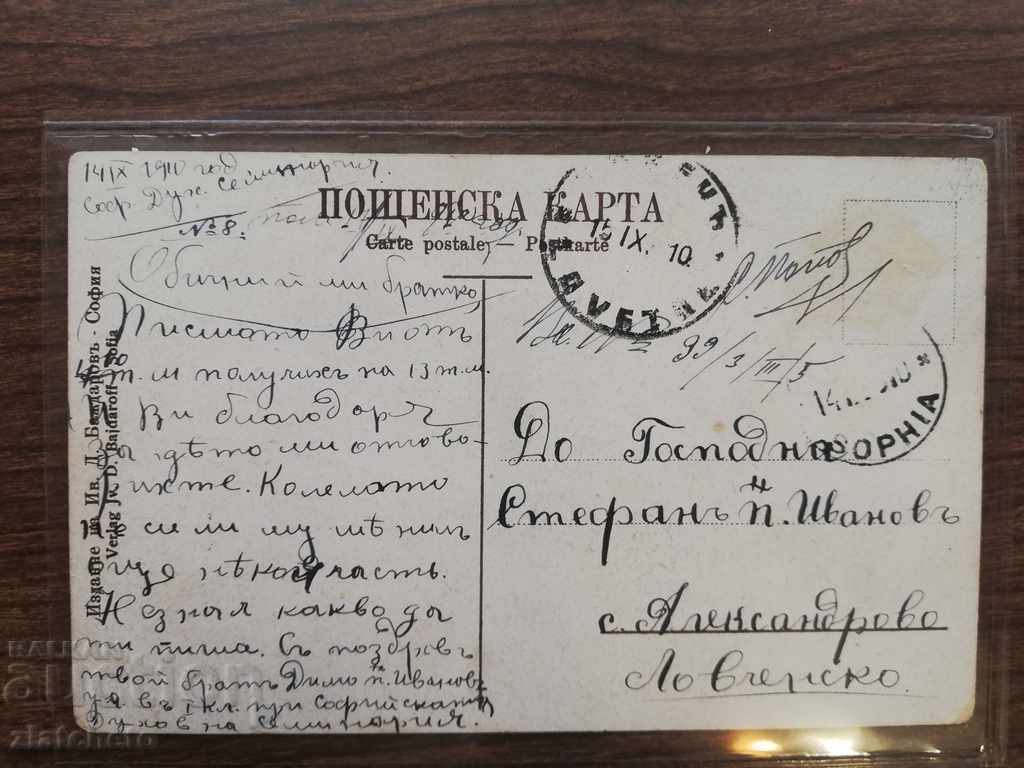 14 IX 1910 год
Соф. Дух. Семинария.
№ 8.
ПОЩЕНСКА КАРТА
Carte postale, — Postkarte
Обичний ми братко,
Писмото Ви отъ
т.м. получихъ на 13 т.м.
Ви благодаря
дѣто ми отгово-
ихте. Колелото
си ли му мѣнил
още нѣкоя часть.
Незная какво да
ти пиша. Съ поздравъ
твой братъ Димо п. Ивановъ
уч. въ I кл. при Софийската
Духовна Семинария.
Издание на Ив. Д. Баждаровъ - София
Verlag Iw. D. Bajdaroff - Sofia
15 IX. 10
99/3/III/5
14
СОФИЯ
До Господина
Стефанъ п. Ивановъ
с. Александрово
Ловченско.
BALKAN
auction
zlatcheto